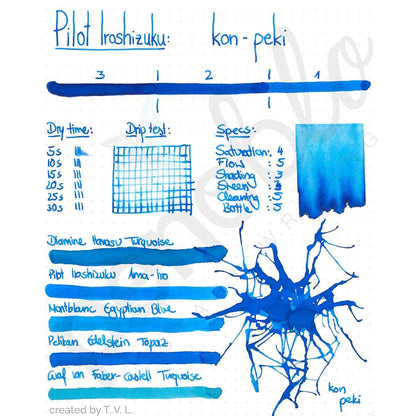 Pilot Iroshizuku: kon-peki
3 2 1
Dry-time: Driptest: Specs:
5s
10s
15s
20s
25s
30s
Saturation: 4
Flow : 5
Shading : 3
Sheen :
Cleaning : 5
Bottle : 5
Diamine Havasu Turquoise
Pilot Iroshizuku Ama-iro
Montblanc Egyptian Blue
Pelikan Edelstein Topaz
Graf von Faber-Castell Turquoise
kon
peki
created by T. V. L.